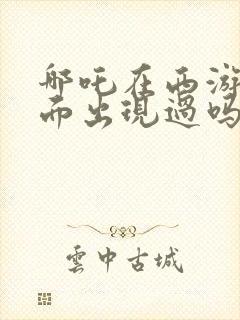 哪吒在西游
而出现过吗
雲中古城